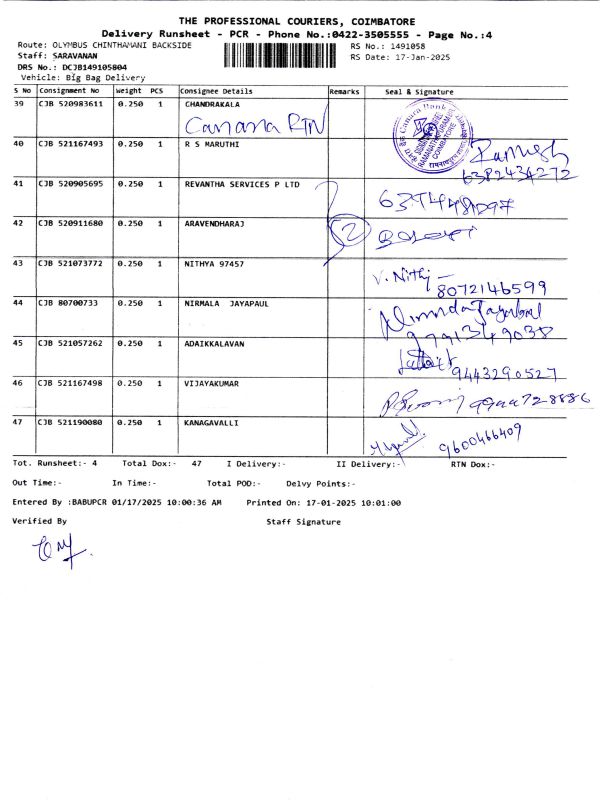 THE PROFESSIONAL COURIERS, COIMBATORE
Delivery Runsheet - PCR - Phone No.:0422-3505555 - Page No.:4
Route: OLYMBUS CHINTHAMANI BACKSIDE
RS No.: 1491058
Staff: SARAVANAN
RS Date: 17-Jan-2025
DRS No.: DCJB149105804
Vehicle: Big Bag Delivery
S No Consignment No Weight PCS Consignee Details Remarks Seal & Signature
39 CJB 520983611 0.250 1 CHANDRAKALA
Canara RTN
Canara Bank
COIMBATORE
40 CJB 521167493 0.250 1 R S MARUTHI
Ramesh
6382434272
41 CJB 520905695 0.250 1 REVANTHA SERVICES P LTD
42 CJB 520911680 0.250 1 ARAVENDHARAJ
2
43 CJB 521073772 0.250 1 NITHYA 97457
V. Nithy
8072146599
44 CJB 80700733 0.250 1 NIRMALA JAYAPAUL
9791349038
45 CJB 521057262 0.250 1 ADAIKKALAVAN
9443290527
46 CJB 521167498 0.250 1 VIJAYAKUMAR
47 CJB 521190080 0.250 1 KANAGAVALLI
9600466409
Tot. Runsheet:- 4 Total Dox:- 47 I Delivery:- II Delivery:- RTN Dox:-
Out Time:- In Time:- Total POD:- Delvy Points:-
Entered By :BABUPCR 01/17/2025 10:00:36 AM Printed On: 17-01-2025 10:01:00
Verified By Staff Signature